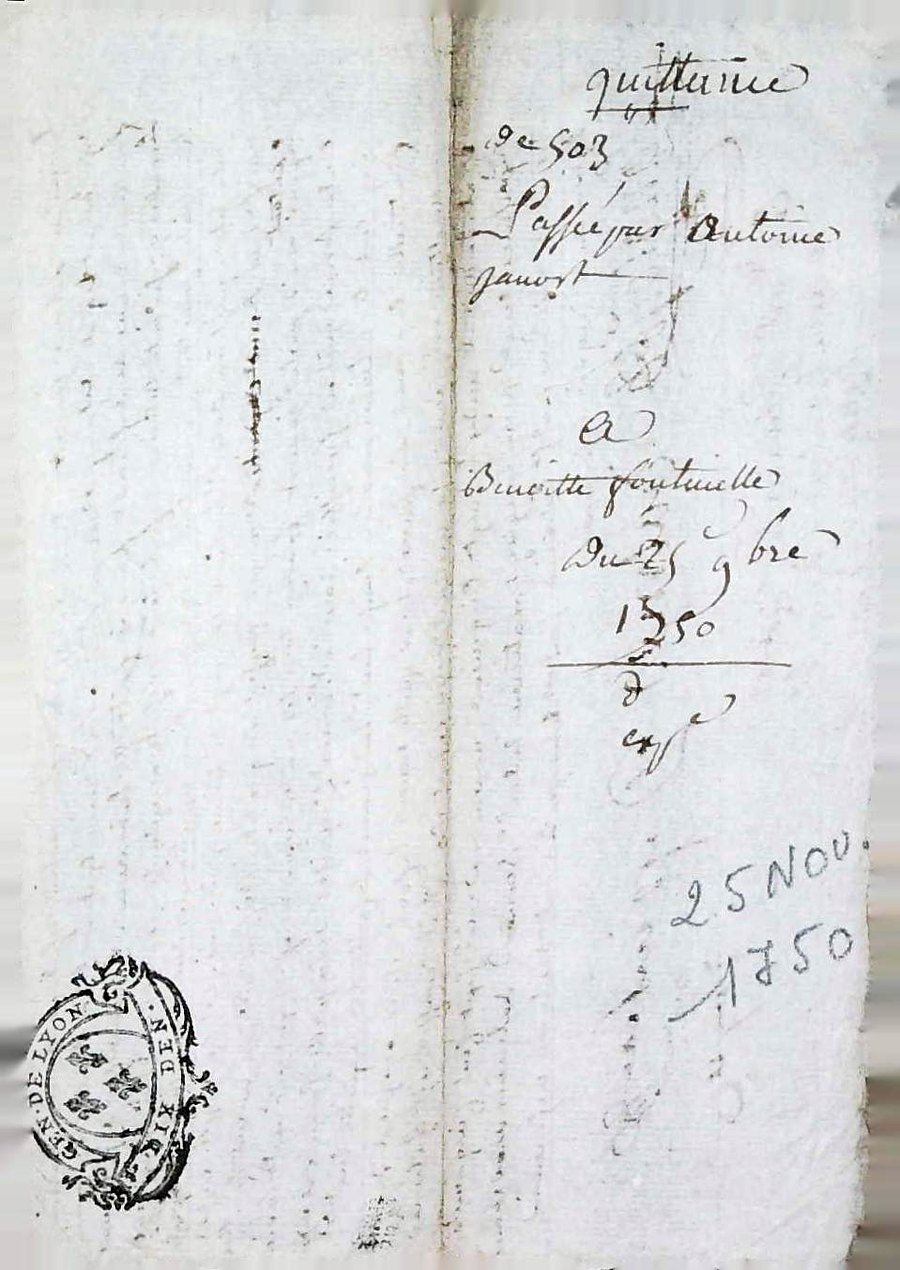 quittance
de 503
Passée par Antoine
Janost
A
Benoitte fontinelle
Du 25 9bre
1750
expe
25 NOV.
1750
GEN. DE LYON.
DIX DEN.